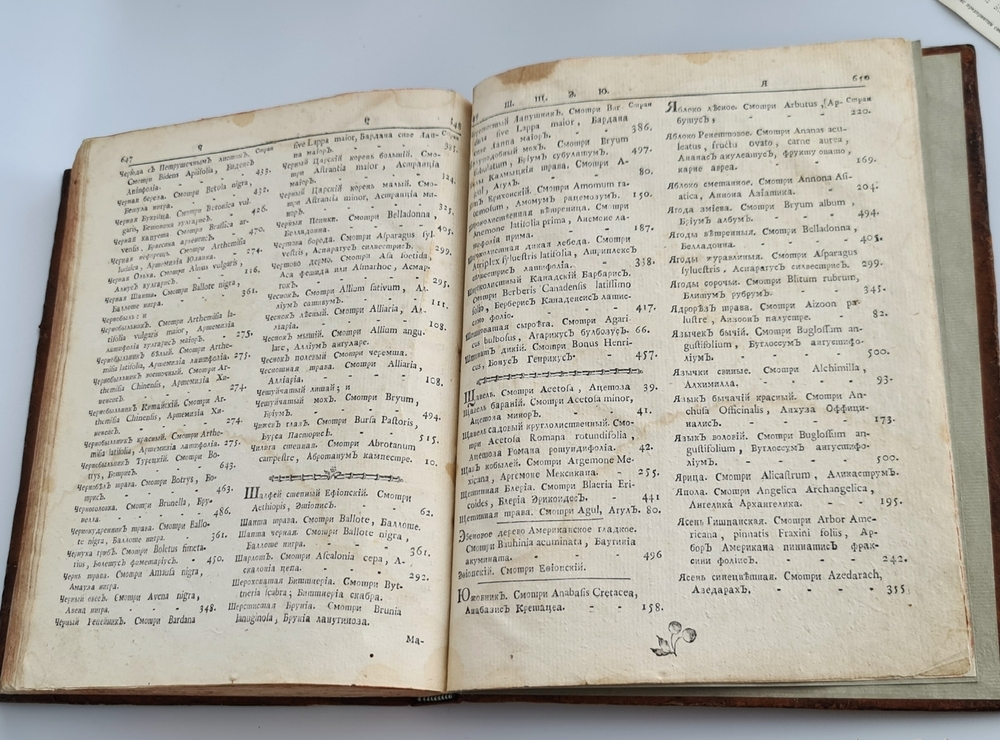 647
Ч
Череда съ Петрушечнымъ листомъ. Стран
Смотри Bidens Apiifolia, Биденъ
Апіифоліа. - 433.
Черная береза. Смотри Betula nigra,
Бетула нигра. - 432.
Черная Буквица. Смотри Betonica vul-
garis, Бетоника вулгарисъ. - 426.
Черная капуста Смотри Brassica ar-
470.
Смотри Arthemisia
Iudaica, Артемизіа Юдаика. - 274.
Черная Олха. Смотри Alnus vulgaris,
Алнусъ вулгарисъ. - 116.
Черная Шанта. Смотри Ballote nigra,
Баллоте нигра. - 361.
Чернобыль; и
Чернобыльникъ. Смотри Arthemisia la-
tifolia vulgaris maior, Артемизіа
латифоліа вулгарисъ маіоръ. - 275.
Чернобыльникъ бѣлый. Смотри Arthe-
misia latifolia, Артемизіа латифоліа. 275.
Чернобыльникъ восточный. Смотри Ar-
themisia Chinensis, Артемизіа Хи-
ненсисъ. - 274.
Чернобыльникъ Китайскій. Смотри Ar-
themisia Chinensis, Артемизіа Хи-
ненсисъ. - 274.
Чернобыльникъ красный. Смотри Arthe-
misia latifolia, Артемизіа латифоліа. 275.
Чернобыльникъ Турецкій. Смотри Bo-
trys, Ботрисъ. - 643.
Чернобыль трава. Смотри Botrys, Бо-
трисъ. - 463.
Черноголовка. Смотри Brunella, Бру-
нелла. - 486.
Чернокудренникъ трава. Смотри Ballo-
te nigra, Баллоте нигра. - 361.
Чернуха грибъ. Смотри Boletus fimeta-
rius, Болетусъ фиметаріусъ. - 450.
Чернь трава. Смотри Amansa nigra,
Амауза нигра.
Черный овесъ. Смотри Avena nigra,
Авена нигра. - 348.
Черный Репейникъ. Смотри Bardana
Ч
648
sive Lappa maior, Бардана сиве Лап-
па маіоръ. - 385.
Черный Царскій корень большій. Смо-
три Astrantia maior, Астранціа
маіоръ. - 324.
Черный Царскій корень малый. Смо-
три Astrantia minor, Астранціа ми-
норъ. - 325.
Черныя Псинки. Смотри Belladonna,
Белладонна. - 405.
Чертова борода. Смотри Asparagus syl-
vestris, Аспарагусъ силвестрисъ. - 299.
Чертово дермо. Смотри Asa foetida,
Аса фетида или Almarhoc, Алмар-
гокъ. - 295.
Чеснокъ. Смотри Allium sativum, Ал-
ліумъ сативумъ. - 111.
Чеснокъ лѣсный. Смотри Alliaria, Ал-
ліаріа. - 108.
Чеснокъ мышій. Смотри Allium angu-
lare, Алліумъ ангуларе.
Чеснокъ полевый Смотри черемша.
Чесношная трава. Смотри Alliaria,
Алліаріа. - 108.
Чешуйчатый лишай; и
Чешуйчатый мохъ. Смотри Bryum,
Бріумъ. - 494.
Чижевъ глазъ. Смотри Bursa Pastoris,
Бурса Пасторисъ. - 515.
Чилига степная. Смотри Abrotanum
campestre, Абротанумъ кампестре. 10.
Шалфей степный Ефіопскій. Смотри
Aethiopis, Эѳіописъ. - 62.
Шанта трава. Смотри Ballote, Баллоте.
Шанта черная. Смотри Ballote nigra,
Баллоте нигра. - 361.
Шарлотъ. Смотри Ascalonia cepa, А-
скалоніа цепа. - 292.
Шероховатая Биттнеріа. Смотри Byt-
tneria scabra; Биттнеріа скабра.
Шерстистая Бруніа. Смотри Brunia
lanuginosa, Бруніа ланугиноза.
Ма-
Ш. Щ. Э. Ю.
Лапушникъ. Смотри Bar Стран
dana sive Lappa maior, Бардана
Лаппа маіоръ. - 386.
мохъ. Смотри Bryum
subulatum, Бріумъ субулатумъ. - 497.
Калмыцкія трава. Смотри A-
gul, Агулъ. - 80.
Смотри Amomum ra-
cemosum, Амомумъ рацемозумъ. - 150.
вѣтреница. Смотри
Anemone latifolia prima, Анемоне ла-
тифоліа прима. - 187.
дикая лебеда. Смотри
Atriplex sylvestris latifolia, Атриплексъ
силвестрисъ латифоліа. - 338.
Канадскій Барбарисъ.
Смотри Berberis Canadensis latissimo
folio, Берберисъ Канаденсисъ латис-
симо фоліо. - 417.
сыроѣга. Смотри Agari
cus bulbosus, Агарикусъ булбозусъ. 66.
дикій. Смотри Bonus Henri-
cus, Бонусъ Генрикусъ. - 457.
Щавель. Смотри Acetosa, Ацетоза 39.
Щавель бараній. Смотри Acetosa minor,
Ацетоза миноръ. - 41.
Щавель садовый круглолиственный. Смо-
три Acetosa Romana rotundifolia,
Ацетоза Романа ротундифоліа. - 42.
кобылей. Смотри Argemone Me-
xicana, Аргемоне Мексикана. - 255.
Щетинная Блеріа. Смотри Blaeria Eri-
coides, Блеріа Эрикоидесъ. - 441
Щетинная трава. Смотри Agul, Агулъ. 80.
Эбеновое дерево Американское гладкое.
Смотри Bauhinia acuminata, Баугиніа
акумината. - 496
Эѳіопскій. Смотри Ефіопскій.
Южовникъ. Смотри Anabasis Cretacea,
Анабазисъ Кретацеа. - 158.
Я
650
Яблоко лѣсное. Смотри Arbutus, Ар- Стран
бутусъ, - 220.
Яблоко Ренетовое. Смотри Ananas acu-
leatus, fructu ovato, carne aurea,
Ананасъ акулеатусъ, фрукту овато,
карне авреа. - 169.
Яблоко сметанное. Смотри Annona Asi-
atica, Аннона Азіатика. - 204.
Ягода зміева. Смотри Bryum album,
Бріумъ албумъ. - 494.
Ягоды вѣтренныя. Смотри Belladonna,
Белладонна. - 405.
Ягоды журавлиныя. Смотри Asparagus
sylvestris, Аспарагусъ силвестрисъ. 299.
Ягоды сорочьи. Смотри Blitum rubrum,
Блитумъ рубрумъ. - 345.
Ядроръзъ трава. Смотри Aizoon pa-
lustre, Аизоонъ палустре. - 82.
Язычекъ бычій. Смотри Buglossum an-
gustifolium, Буглоссумъ ангустифо-
ліумъ. - 500.
Язычки свиные. Смотри Alchimilla,
Алхимилла. - 93.
Языкъ бычачій красный. Смотри An-
chusa Officinalis, Анхуза Оффици-
налисъ. - 173.
Языкъ воловій. Смотри Buglossum an-
gustifolium, Буглоссумъ ангустифо-
ліумъ. - 500.
Ярица. Смотри Alicastrum, Аликаструмъ.
Япола. Смотри Angelica Archangelica,
Ангелика Архангелика. - 195.
Ясень Гишпанская. Смотри Arbor Ame-
ricana, pinnatis Fraxini foliis, Ар-
боръ Американа пиннатисъ фрак-
сини фоліисъ. - 242.
Ясень синецвѣтная. Смотри Azedarach,
Азедарахъ. - 355